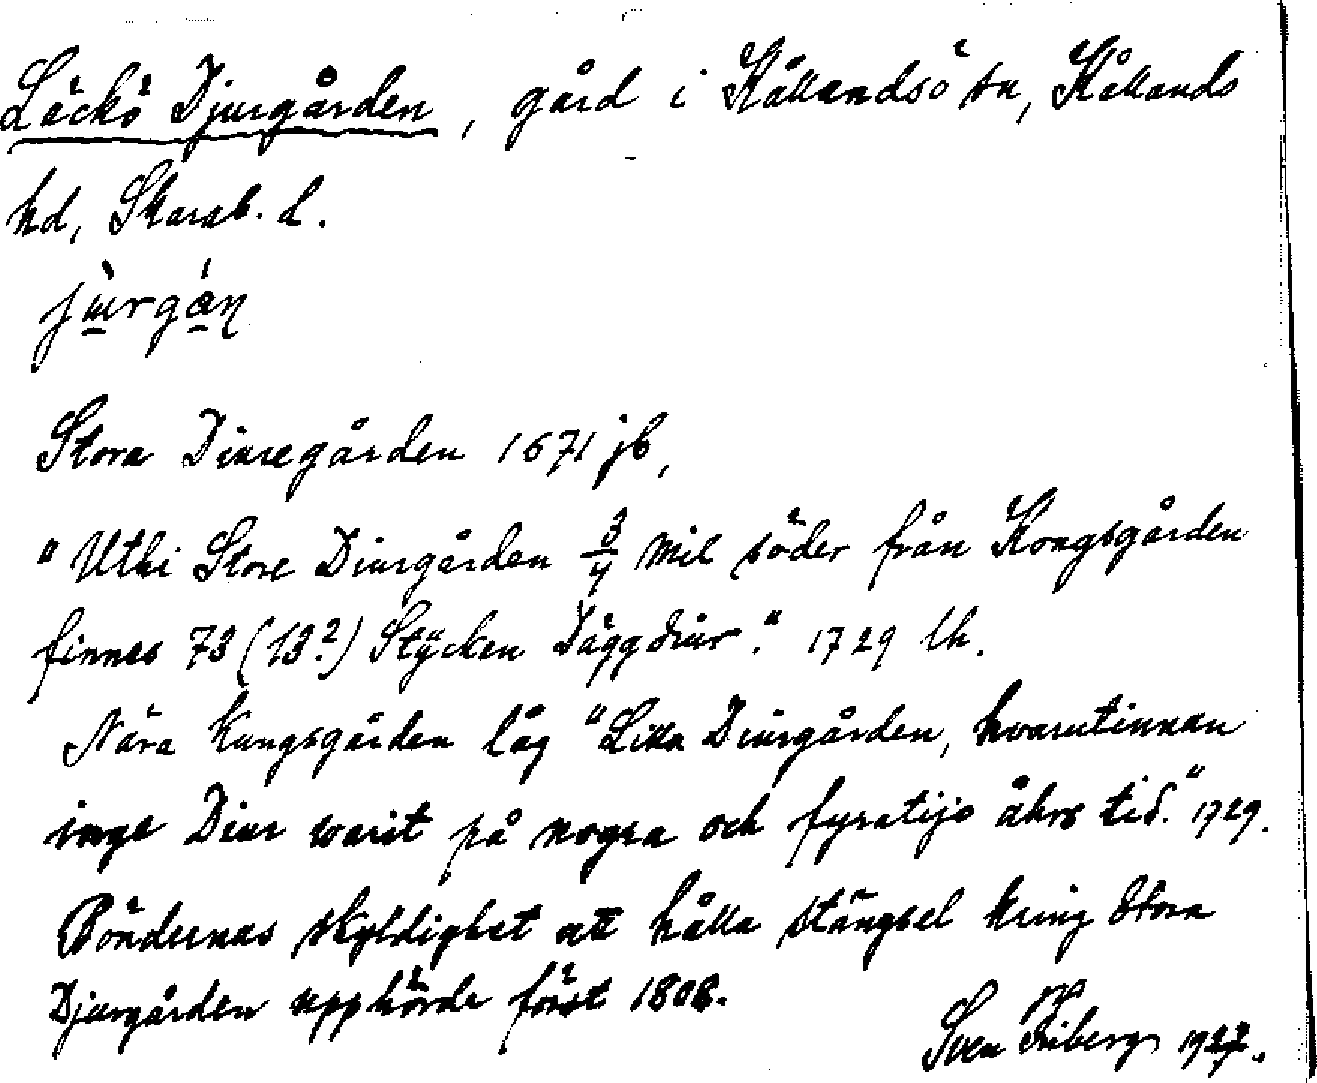 Läckö Djurgården, gård i Kållandsö sn, Kållands
hd, Skarab. l.
jùrgán
Stora Diuregården 1671 jb,
"Uthi Store Diurgården 3/4 Mil söder från Kongsgården
finnes 73 (13?) Stÿcken Däggdiur." 1729 lh.
Nära Kungsgården låg "Lilla Diurgården, hvarutinnan
inge Diur warit på nogra och fyratijo åhrs tid." 1729.
Böndernas skyldighet att hålla stängsel kring Stora
Djurgården upphörde först 1808.
Sven Friberg 1927.